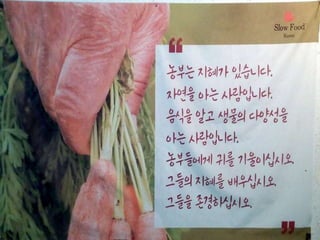 Slow Food
농부는 지혜가 있습니다.
자연을 아는 사람입니다.
음식을 알고 생물의 다양성을
아는 사람입니다.
농부들에게 귀를 기울이십시오.
그들의 지혜를 배우십시오.
그들을 존경하십시오.